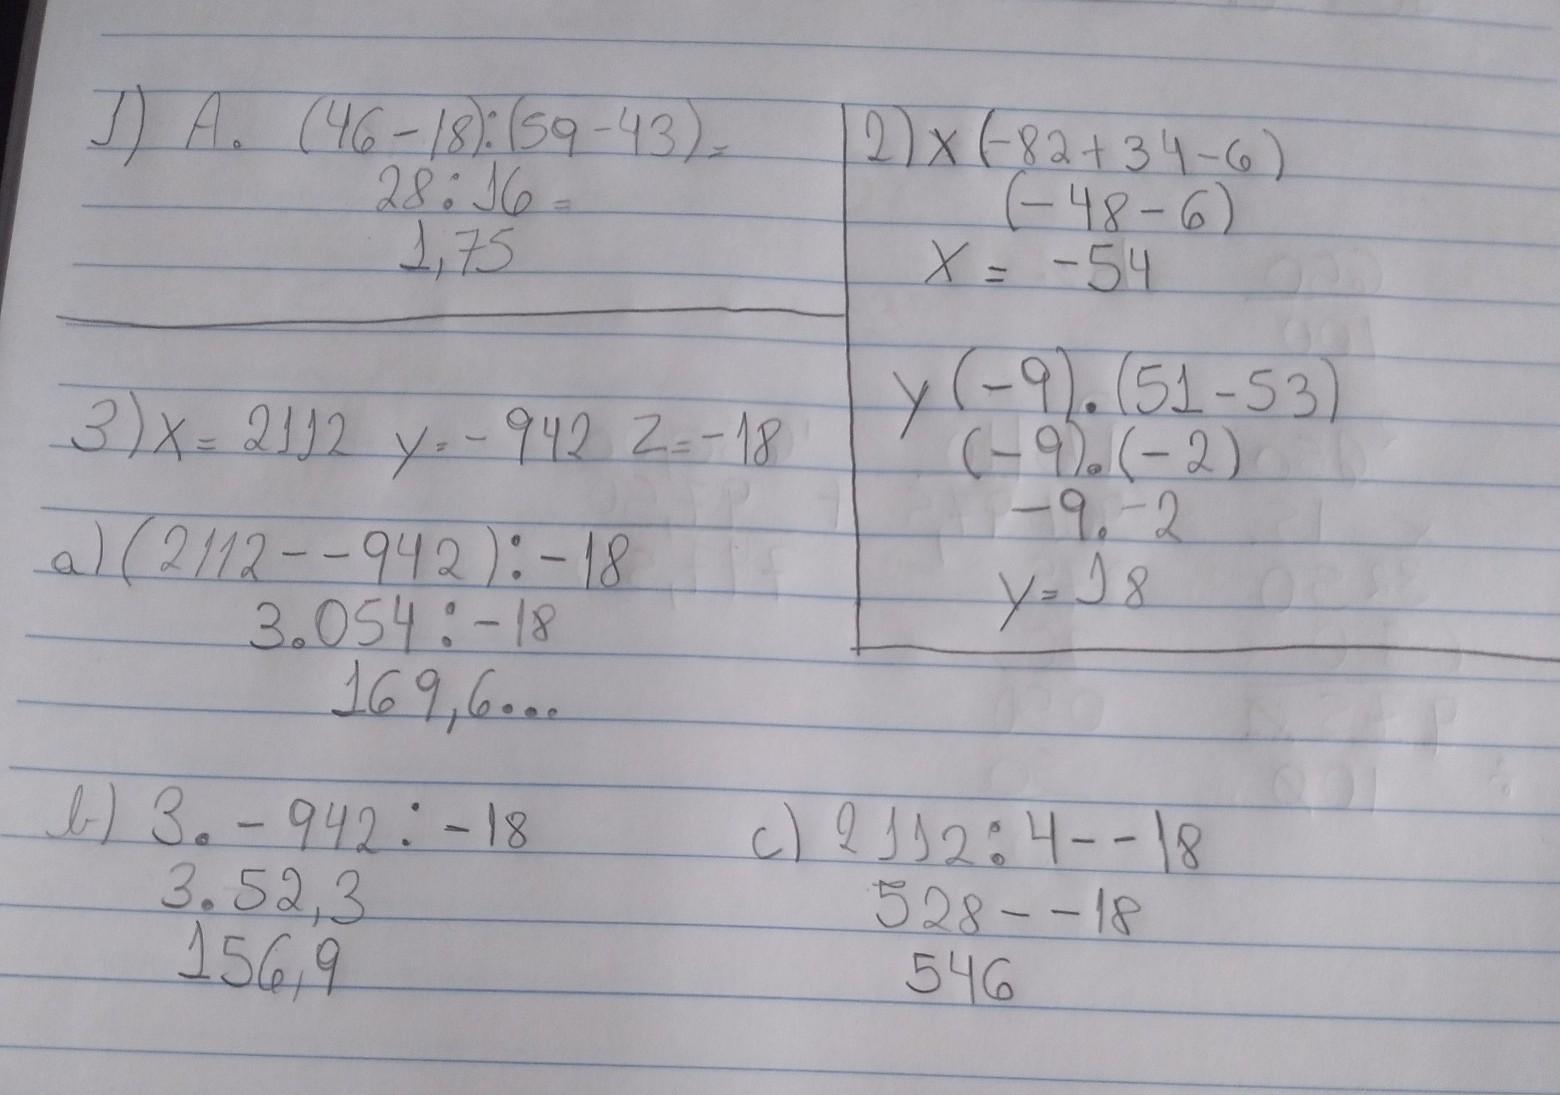 1) A. (46-18):(59-43)=
28:16=
1,75
2) x (-82+34-6)
(-48-6)
x = -54
y (-9).(51-53)
(-9).(-2)
-9.-2
y=18
3) x= 2112 y=-942 z=-18
a) (2112--942):-18
3.054:-18
169,6...
b) 3.-942:-18
3.52,3
156,9
c) 2112:4--18
528--18
546